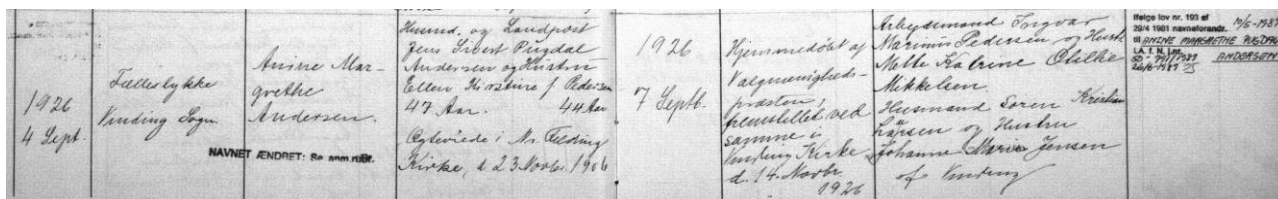 1926
4 Sept.
Fælleslykke
Vinding Sogn.
Anine Mar-
grethe
Andersen.
NAVNET ÆNDRET: Se anm.rubr.
Husmd. og Landpost
Jens Sibert Pugdal
Andersen og Hustru
Ellen Kirstine f. Pedersen
47 Aar. 44 Aar
Ægteviede i Nr. Felding
Kirke, d. 23 Novbr. 1906
1926
7 Septb.
Hjemmedøbt af
Valgmenigheds-
præsten,
fremstillet ved
samme i
Vinding Kirke
d. 14. Novbr.
1926
Arbejdsmand Ingvar
Marinus Pedersen og Hustr
Mette Katrine
Mikkelsen.
Husmand Søren Kristian
Larsen og Hustru
Johanne Marie Jensen
af Vinding
Ifølge lov nr. 193 af
29/4 1981 navneforandr.
til ANINE MARGRETHE PUGDAL
ANDERSEN
I.A. f. N. j.nr.